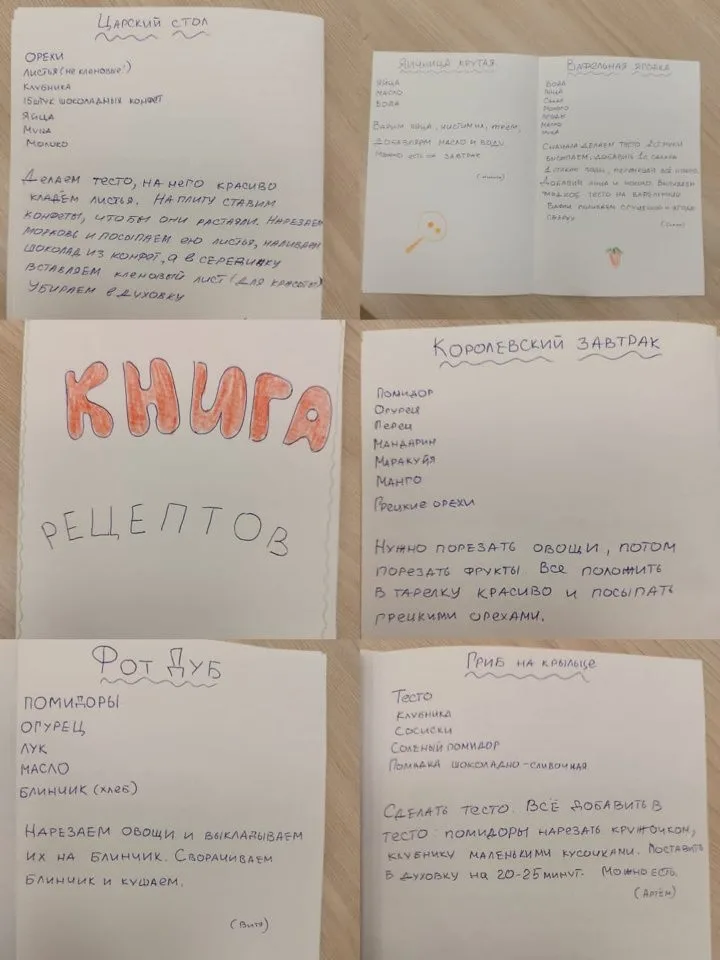 Царский стол
Орехи
Листья (не кленовые!)
Клубника
15 штук шоколадных конфет
Яйца
Мука
Молоко
Делаем тесто, на него красиво
кладём листья. На плиту ставим
конфеты, чтобы они растаяли. Нарезаем
морковь и посыпаем ею листья, наливаем
шоколад из конфет, а в серединку
вставляем кленовый лист (для красоты)
Убираем в духовку
Яичница крутая
Яйца
Масло
Вода
Варим яйца, чистим их, трём,
Добавляем масло и воду.
Можно есть на завтрак
Вафельная ягодка
Вода
Яйца
Сахар
Молоко
Ягоды
Масло
Мука
Сначала делаем тесто: 2ст муки
высыпаем, добавить 1с сахара
1 стакан воды, перемешай всё
Добавить яйца и молоко. Выливаем
тесто на вафельницу
Вафли поливаем сгущёнкой и ягода
сверху
КНИГА
РЕЦЕПТОВ
Королевский завтрак
Помидор
Огурец
Перец
Мандарин
Маракуйя
Манго
Грецкие орехи
Нужно порезать овощи, потом
порезать фрукты. Все положить
в тарелку красиво и посыпать
грецкими орехами.
Фот Дуб
Помидоры
Огурец
Лук
Масло
Блинчик (хлеб)
Нарезаем овощи и выкладываем
их на блинчик. Сворачиваем
блинчик и кушаем.
(Витя)
Гриб на крыльце
Тесто
Клубника
Сосиски
Соленый помидор
Помадка шоколадно-сливочная
Сделать тесто. Всё добавить в
тесто: помидоры нарезать кружочком,
клубнику маленькими кусочками. Поставить
в духовку на 20-25 минут. Можно есть.
(Артём)